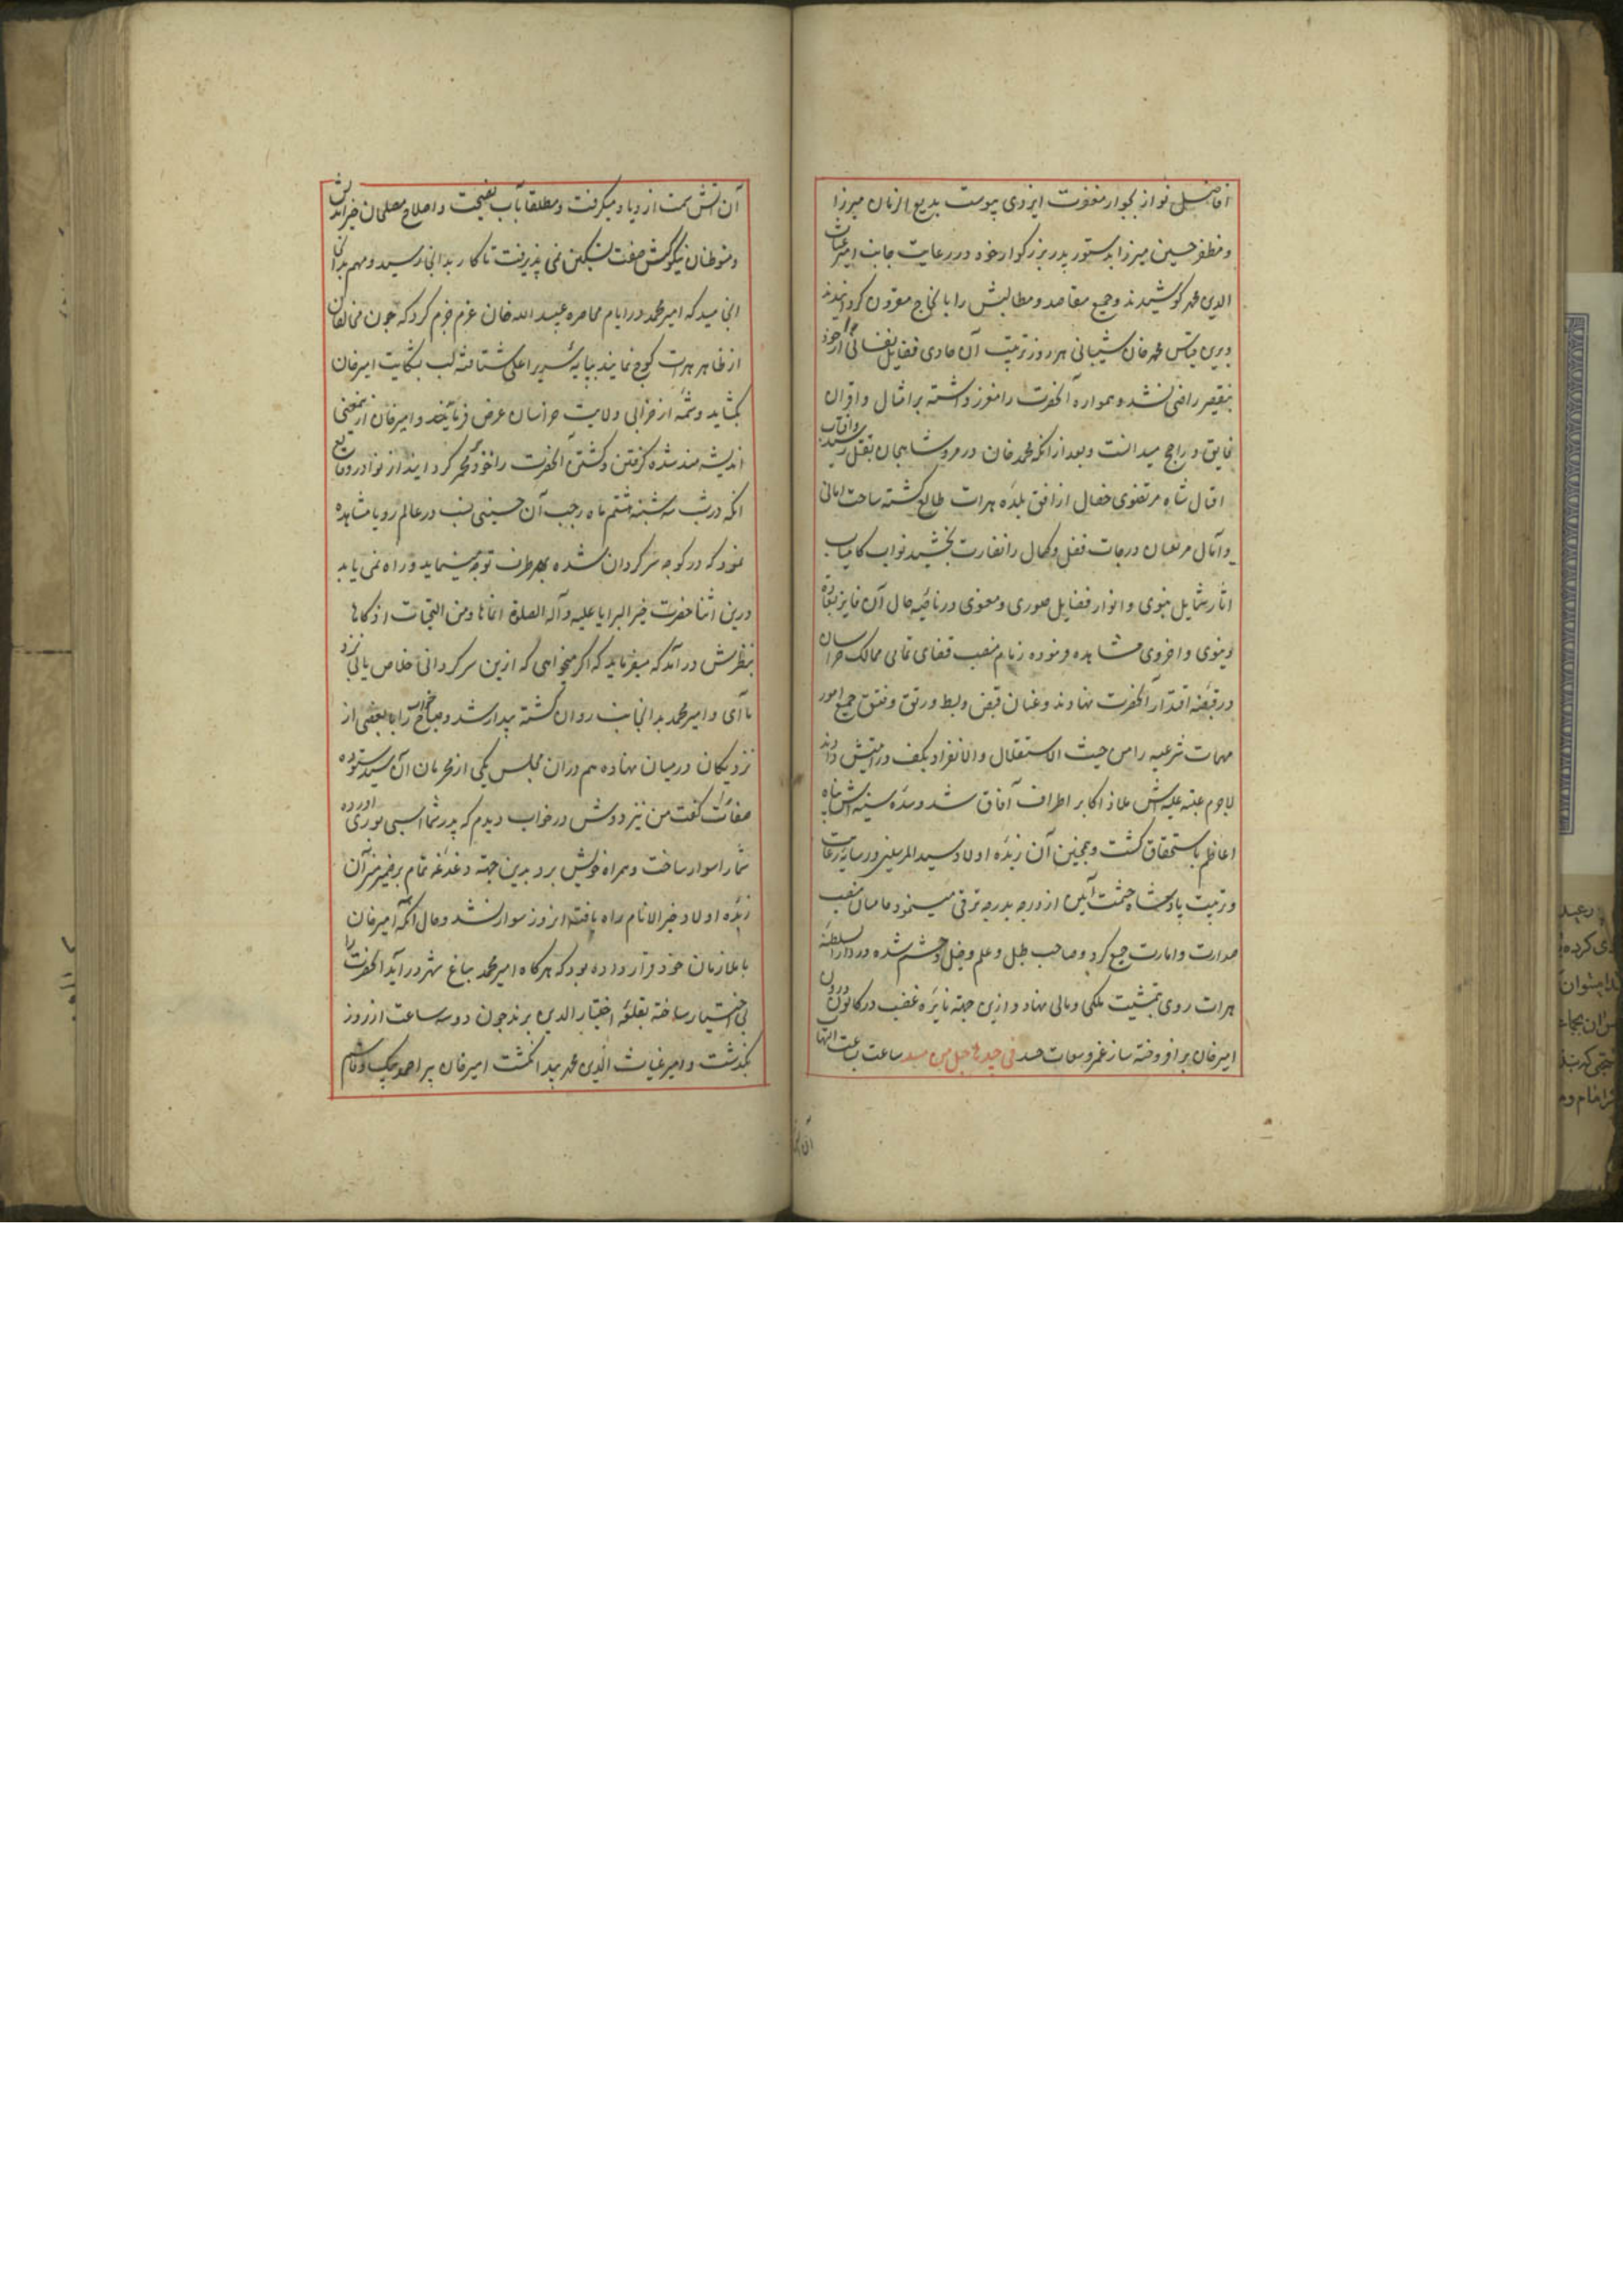 افاضل نواز بجوار مغفرت ایزدی پیوست بدیع الزمان میرزا
و مظفر حسین میرزا بدستور پدر بزرگوار خود در رعایت جانب امیر غیاث
الدین محمد کوشیدند و جمیع مقاصد و مطالبش را بانجاح مقرون کردانیدند
و برین قیاس محمد خان شیبانی هر روز تربیت آن حاوی فضایل نفسانی از خود
بتقصیر راضی نشده همواره آنحضرت را مفرز داشته بر امثال و اقران
فایق و راجح میدانست و بعد از انکه محمد خان در مرو شاهجان بقتل رسید و آفتاب
اقبال شاه مرتضوی خصال از افق بلده هرات طالع کشته ساحت امانی
و آمال مرتقیان درجات فضل و کمال را نضارت بخشید نواب کامیاب
اثار شمایل نبوی و انوار فضایل صوری و معنوی در ناصیه حال آن فایز بسعادة
دنیوی و اخروی مشاهده فرموده زمام منصب قضای تمامی ممالک خراسان
در قبضه اقتدار آنحضرت نهادند و عنان قبض و بسط و رتق و فتق جمیع امور
مهمات شرعیه را من حیث الاستقلال و الانفراد بکف درایتش دادند
لاجرم عتبه علیه‌اش ملاذ اکابر اطراف آفاق شد و سده سنیه‌اش پناه
اعاظم باستحقاق کشت و همچنین آن زبده اولاد سید المرسلین در سایه رعایت
و تربیت پادشاه حشمت آیین از درجه بدرجه ترقی مینمود تا میان منصب
صدارت و امارت جمع کرد و صاحب طبل و علم و خیل و حشم شده در دار السلطنة
هرات روی بتمشیت ملکی و مالی نهاد و ازین جهة نایره غضب در کانون درون
امیر خان بر افروخته ساز غمز و سعات حسد فی جیدها حبل من مسد ساعت بساعت التهاب
آن آتش سمت ازدیاد میکرفت و مطلقا بآب نصیحت و اصلاح مصلحان خیر اندیش
و متوطنان نیکو کش صفت تسکین نمی پذیرفت تا کار بدانجا رسید و مهم بدان
انجامید که امیر محمد در ایام محاصره عبید الله خان عزم جزم کرد که چون مخالفان
از ظاهر هرات کوچ نمایند بپایه سریر اعلی شتافته لب بشکایت امیر خان
بکشاید و شمه از خرابی ولایت خراسان عرض فرماید و امیر خان ازین معنی
اندیشه مند شده کرفتن و کشتن آنحضرت را خود مخمر کردانید از نوادر وقایع
انکه در شب سه شنبه هشتم ماه رجب آن حسینی نسب در عالم رویا مشاهده
نمود که در کوچه سرکردان شده بهر طرف توجه مینماید و راه نمی یابد
درین اثنا حضرت خیر البرایا علیه و آله الصلوة انماها و من التحیات ازکاها
بنظرش در آمد که میفرماید که اکر میخواهی که ازین سرکردانی خلاص یابی نزد
ما آی و امیر محمد بدانجانب روان کشته بیدار شد و صباح خواب را با بعضی از
نزدیکان در میان نهاده هم دران مجلس یکی از محرمان آن سید ستوده
صفات کفت من نیز دوش در خواب دیدم که پدر شما اسبی بوری آورده
شما را سوار ساخت و همراه خویش برد بدین جهة دغدغه تمام بر ضمیر منیر آن
زبده اولاد خیر الانام راه یافته انروز سوار نشد و حال آنکه امیر خان
با ملازمان خود قرار داده بود که هر کاه امیر محمد بباغ شهر در آید آنحضرت را
بی اختیار ساخته بقلعه اختیار الدین برند چون دو سه ساعت از روز
بکذشت و امیر غیاث الدین محمد پیدا نکشت امیر خان پیر احمد بیک و قاسم